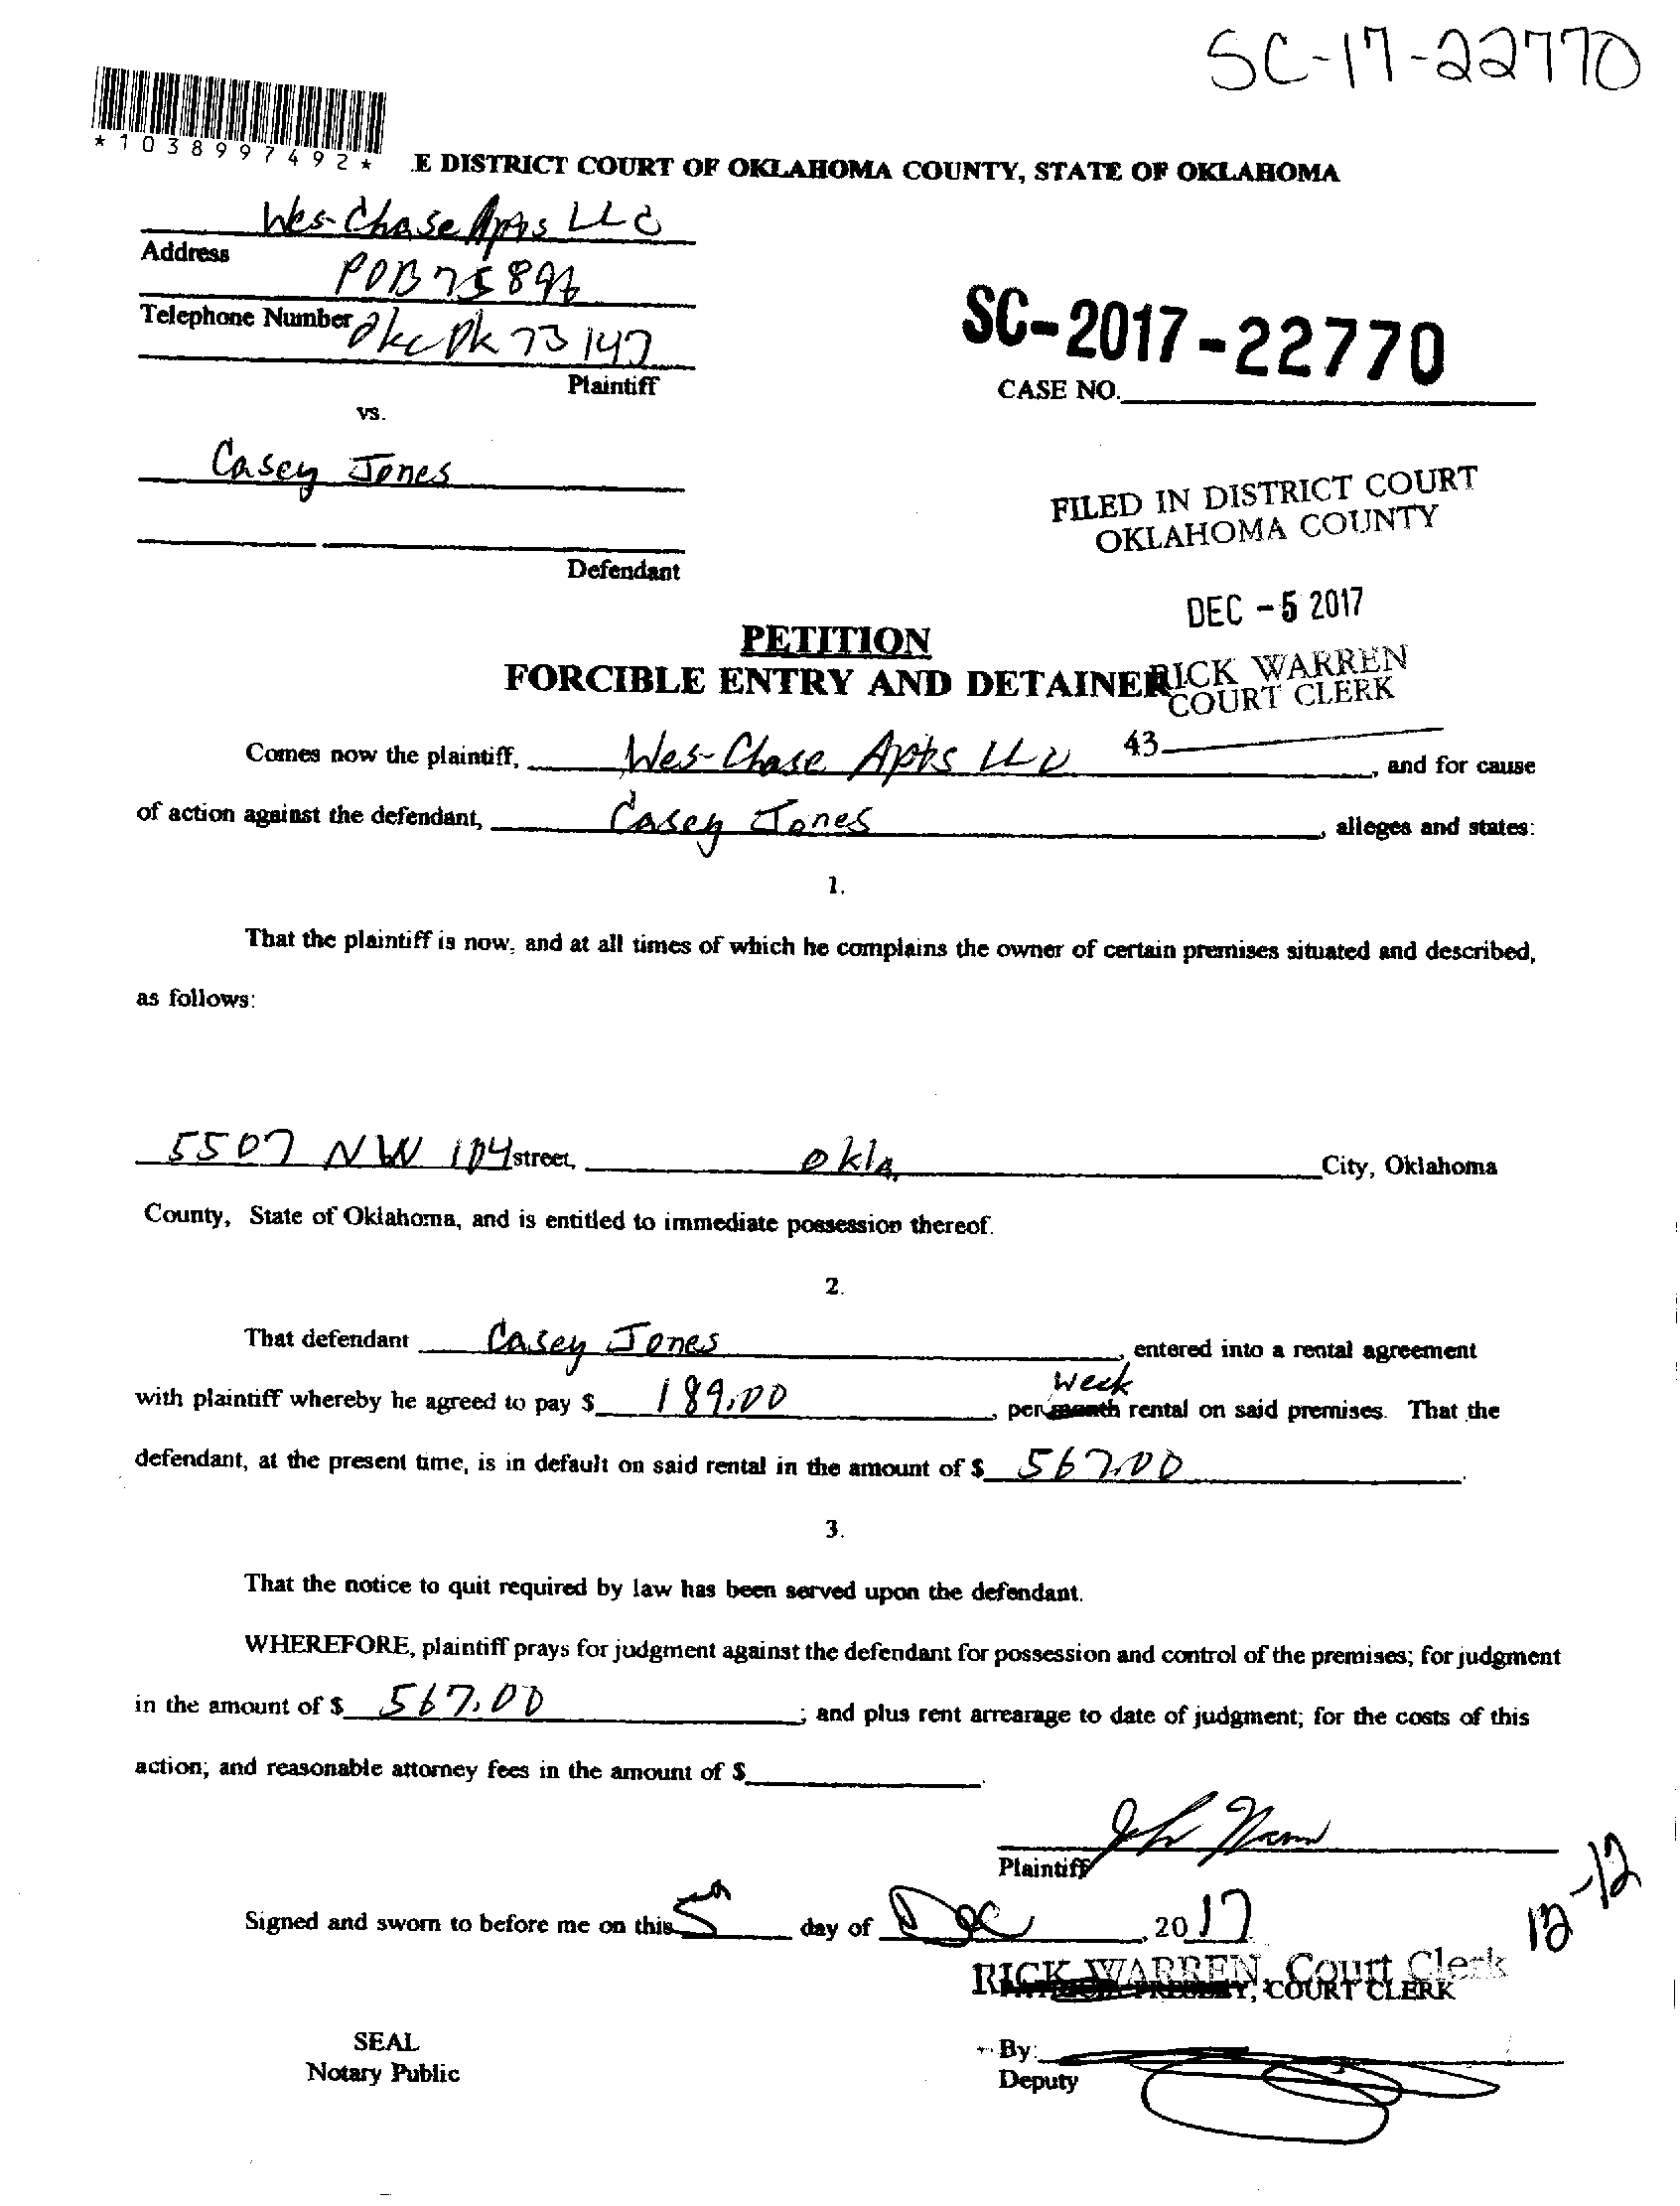 SC-17-22770
*1038997492*
E DISTRICT COURT OF OKLAHOMA COUNTY, STATE OF OKLAHOMA
Wes-Chase Apts LLC
Address
POB 75896
Telephone Number Okc Ok 73147
Plaintiff
SC-2017-22770
CASE NO.
vs.
Casey Jones
Defendant
FILED IN DISTRICT COURT
OKLAHOMA COUNTY
DEC -5 2017
RICK WARREN
COURT CLERK
43
PETITION
FORCIBLE ENTRY AND DETAINER
Comes now the plaintiff, Wes-Chase Apts LLC, and for cause
of action against the defendant, Casey Jones, alleges and states:
1.
That the plaintiff is now, and at all times of which he complains the owner of certain premises situated and described,
as follows:
5507 NW 104 street, Okla. City, Oklahoma
County, State of Oklahoma, and is entitled to immediate possession thereof.
2.
That defendant Casey Jones, entered into a rental agreement
week
with plaintiff whereby he agreed to pay $ 189.00, per month rental on said premises. That the
defendant, at the present time, is in default on said rental in the amount of $ 567.00.
3.
That the notice to quit required by law has been served upon the defendant.
WHEREFORE, plaintiff prays for judgment against the defendant for possession and control of the premises; for judgment
in the amount of $ 567.00; and plus rent arrearage to date of judgment; for the costs of this
action; and reasonable attorney fees in the amount of $
Plaintiff
Signed and sworn to before me on this 5th day of Dec, 2017
12-12
RICK WARREN, Court Clerk
COURT CLERK
SEAL
Notary Public
By:
Deputy